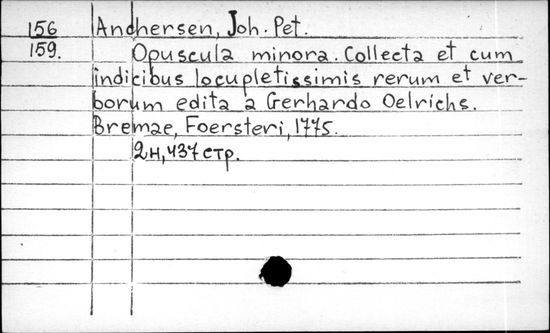 156 Anchersen, Joh. Pet.
159. Opuscula minora. Collecta et cum
indicibus locupletissimis rerum et ver-
borum edita a Gerhardo Oelrichs.
Bremae, Foersteri, 1775.
2н, 437 стр.